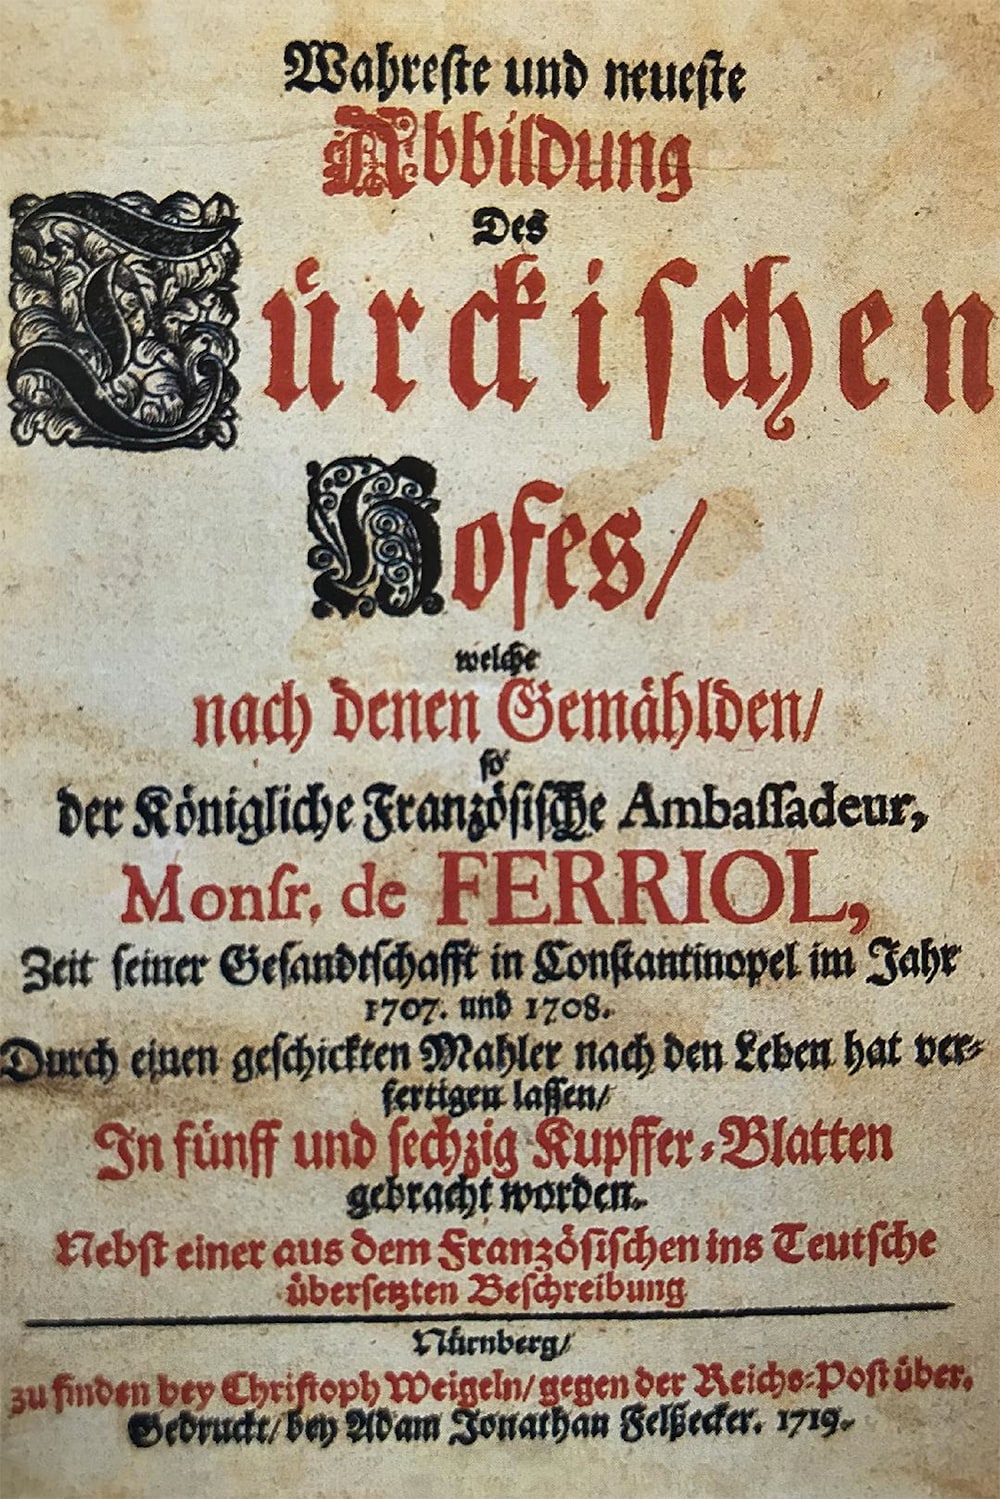 Wahreste und neueste
Abbildung
Des
Türckischen
Hofes/
welche
nach denen Gemählden/
so
der Königliche Französische Ambassadeur,
Monsr. de FERRIOL,
Zeit seiner Gesandtschafft in Constantinopel im Jahr
1707. und 1708.
Durch einen geschickten Mahler nach den Leben hat ver-
fertigen lassen/
In fünff und sechzig Kupffer-Blatten
gebracht worden.
Nebst einer aus dem Französischen ins Teutsche
übersetzten Beschreibung
Nürnberg/
zu finden bey Christoph Weigeln/ gegen der Reichs-Post über.
Gedruckt/ bey Adam Jonathan Felßecker. 1719.